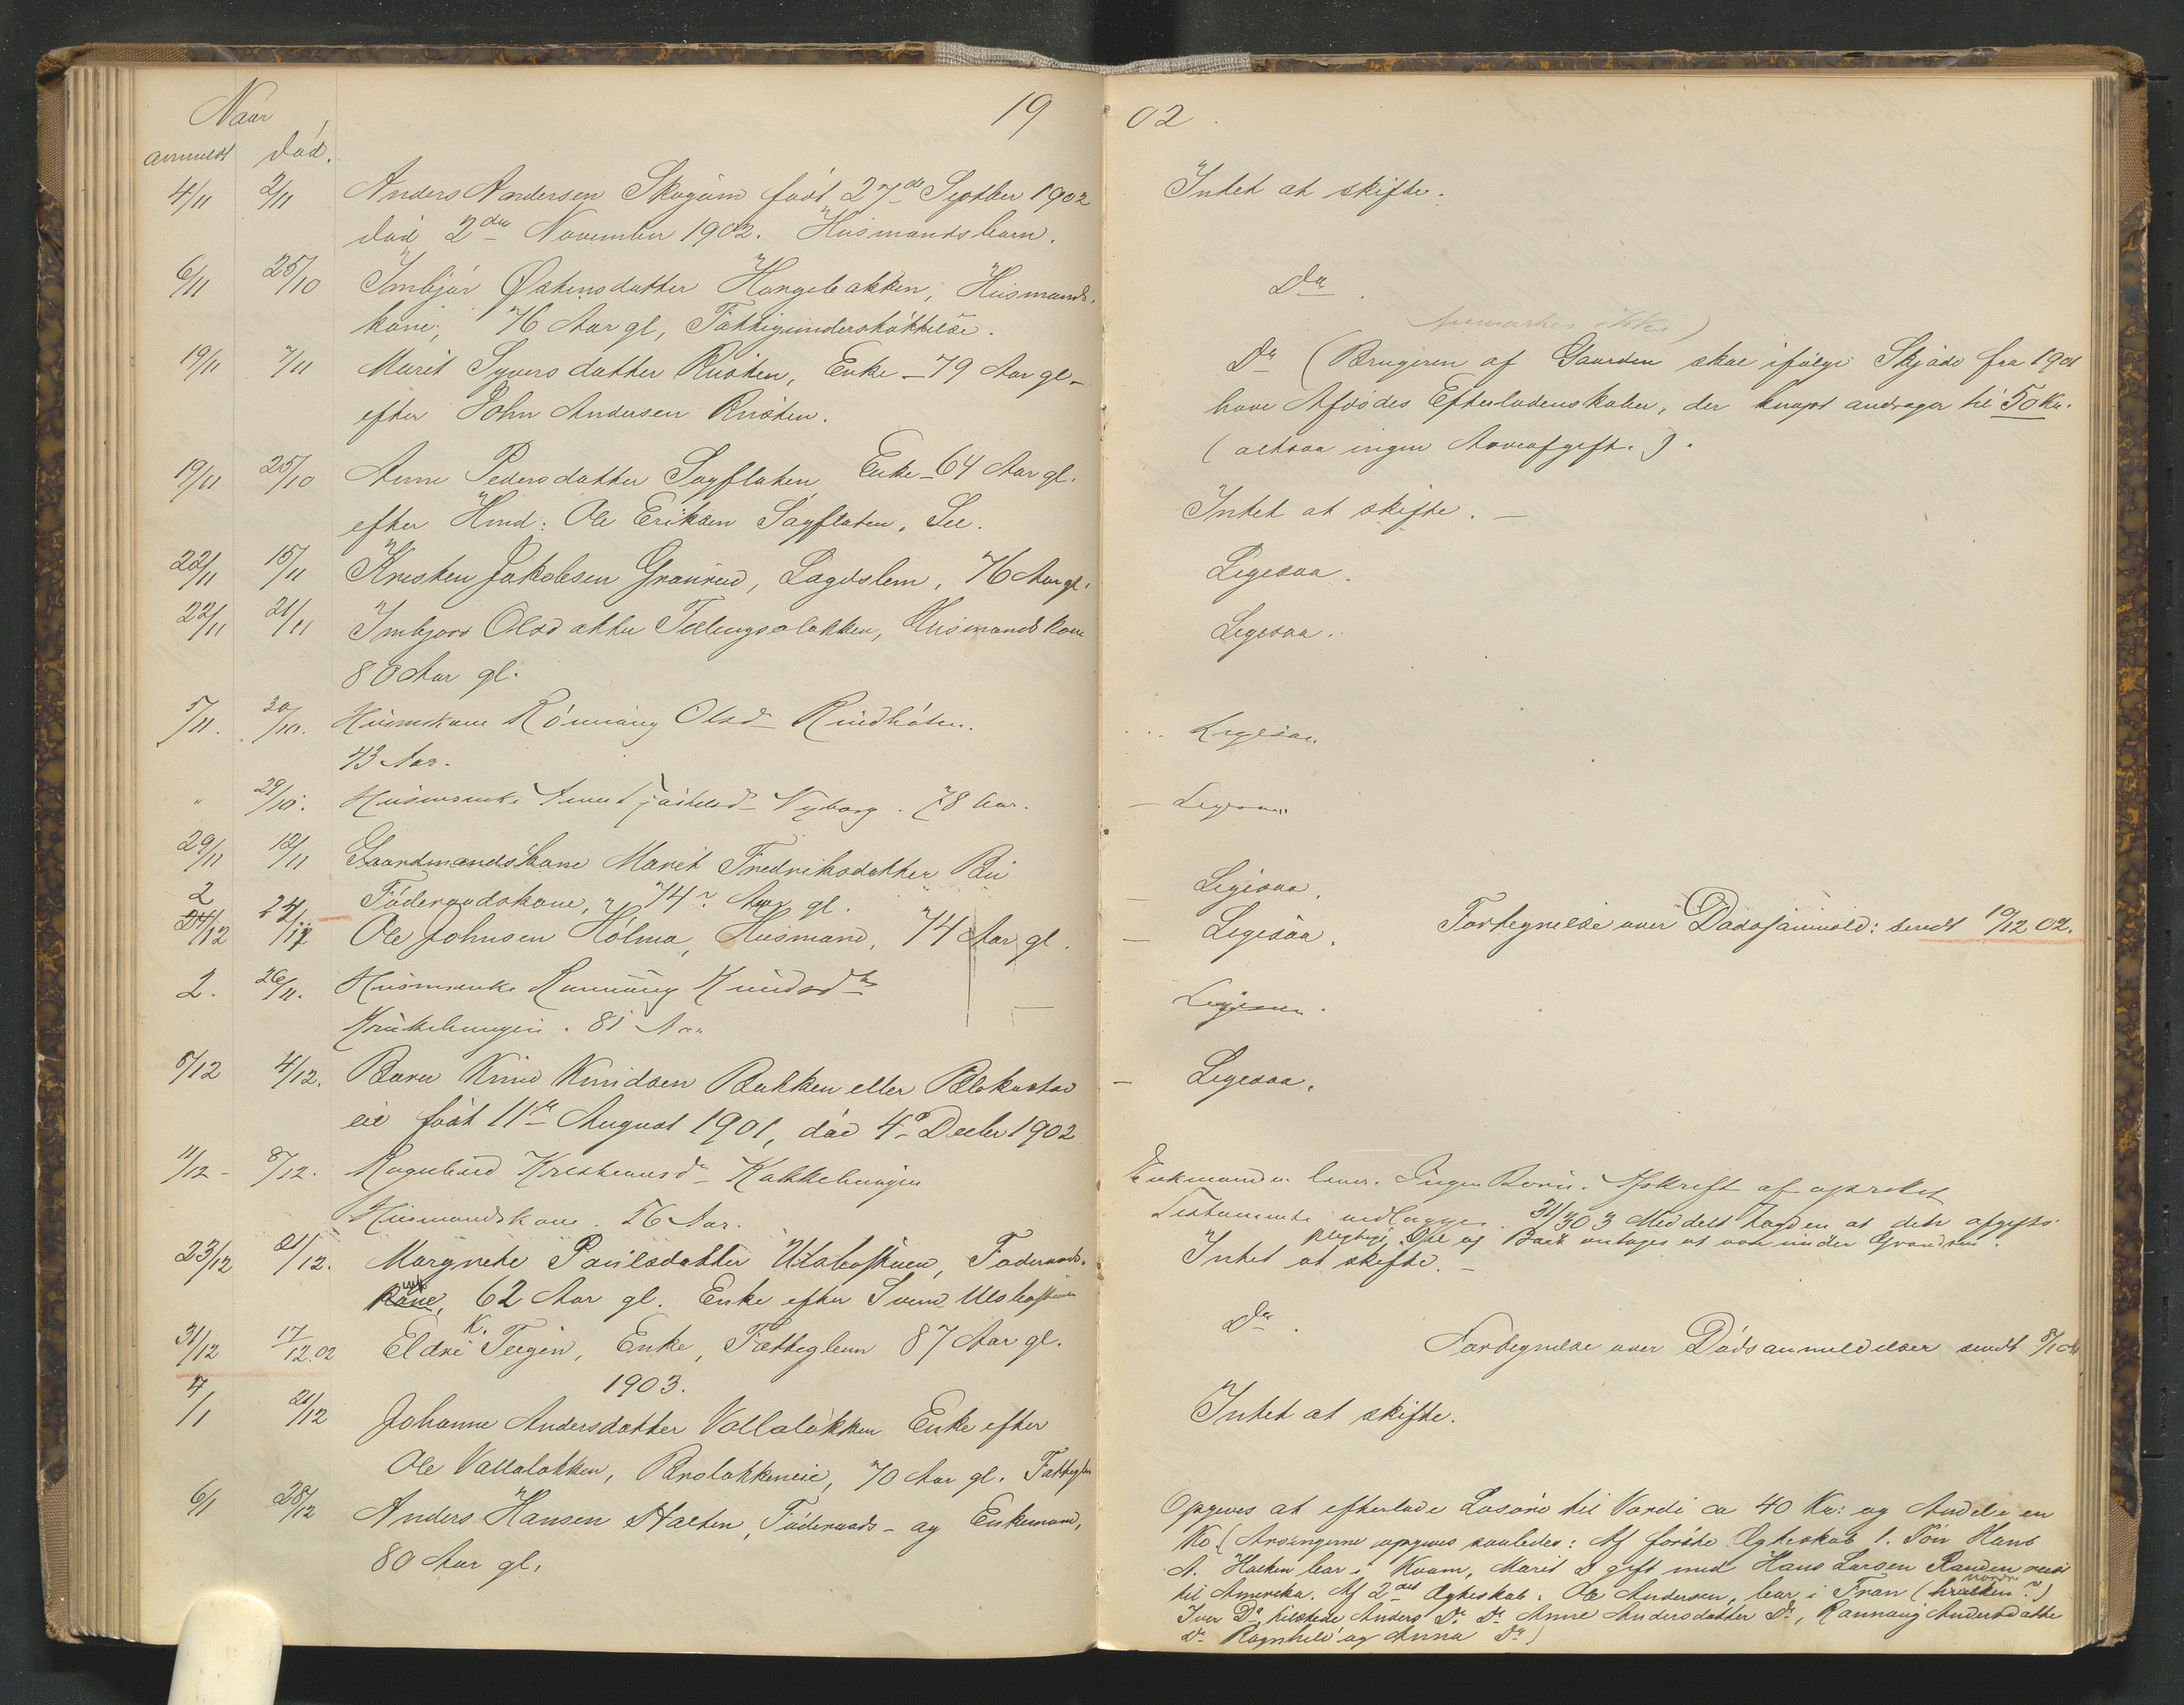 Naar
anmeldt død.
19
4/11 2/11 Anders Andersen Skogum født 27de Septber 1902
død 2den November 1902. Husmandsbarn.
6/11 25/10 Imbjør Østensdatter Hangebakken, Husmands-
kone, 76 Aar gl, Fattigunderstøttelse.
19/11 7/11 Marit Syversdatter Rusten, Enke - 79 Aar gl -
efter John Andersen Rusten.
19/11 25/10 Anne Pedersdatter Sagflaten Enke - 64 Aar gl.
efter Hmd: Ole Eriksen Sagflaten. Sel.
22/11 15/11 Kresten Jakobsen Granrud, Lagdslem, 76 Aar gl.
22/11 21/11 Imbjørs Olsdatter Husmandskone
80 Aar gl.
5/11. 30/10. Husmskone Rønnaug Olsd
43 Aar.
" 29/10. Husmsenke Nyborg. 78 Aar.
29/11 12/11 Gaardmandskone Marit Fredriksdatter Bu
Føderaadskone, 74 Aar gl.
2/12 24/11 Ole Johnsen Holmo, Husmand, 74 Aar gl.
2. 26/11. Husmsenke Rønnaug Knudsdtr
81 Aar
5/12 4/12. Barn Knud Knudsen Bakken eller
eie født 11te August 1901, død 4de Decbr 1902
11/12 - 8/12. Ragnhild Kristiansdr
Husmandskone. 56 Aar.
23/12 21/12. Margrete Paulsdatter Føderaads-
62 Aar gl. Enke efter Svend
31/12 17/12.02 Eldri K. Teigen, Enke, Fattiglem 87 Aar gl.
1903.
4/1 21/12 Johanne Andersdatter Vollaløkken Enke efter
Ole Vallaløkken, Broløkkeneie, 70 Aar gl. Fattiglem
6/1 28/12 Anders Hansen Føderaads- og Enkemand,
80 Aar gl.
02.
Intet at skifte.
Do
Anmerkes ikke)
Do (Brugeren af Gaarden skal ifølge Skjøde fra 1901
have Afdødes Efterladenskaber, der knapt andrager til 50 Kr.
(altsaa ingen Arveafgift.).
Intet at skifte. -
Ligesaa.
Ligesaa.
Ligesaa.
Ligesaa.
Ligesaa.
Ligesaa. Fortegnelse over Dødsanmeld: sendt 10/12 02.
Ligesaa.
Ligesaa.
Enkemanden lever. Ingen Børn. Afskrift af oprettet
Testamente vedlægges. 31/3 03 Meddelt Lagden at dette afgifts-
pligtigt.
Intet at skifte. -
Do.
Fortegnelse over Dødsanmeldelser sendt
Intet at skifte.
Opgives at efterlade Løsøre til Værdi ca 40 Kr: og Andel i en
Ko (Arvingerne opgives saaledes: Af første Ægteskab 1. Søn Hans
A. bor i Kvam, Marit D gift med Hans Larsen Randen reist
til Amerika. Af 2det Ægteskab: Ole Andersen, bor i Fron
Iver Do, Anders Do Do Anne Andersdatter Do, Rannaug Andersdatter
Do Ragnhild og Anna Do)